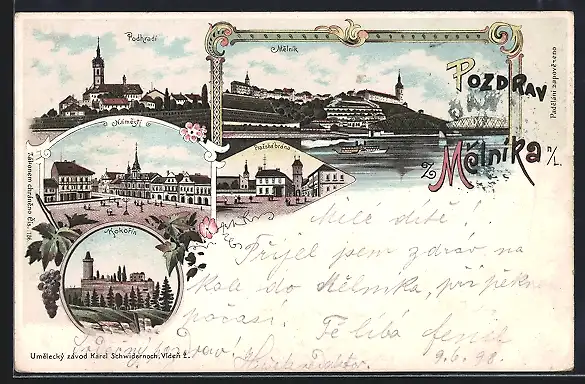 Podhradí
Mělník
Pozdrav
z
Mělníka n/L.
Podělání zapovězeno
Náměstí
Pražská brána
Zákonem chráněno čís. 116.
Kokořín
Umělecký závod Karel Schwidernoch, Vídeň
Milé dítě!
Přijel jsem zdráv na
do Mělníka, při pěkném
počasí. Tě líbá
Srdečný pozdrav!
9.6.98.